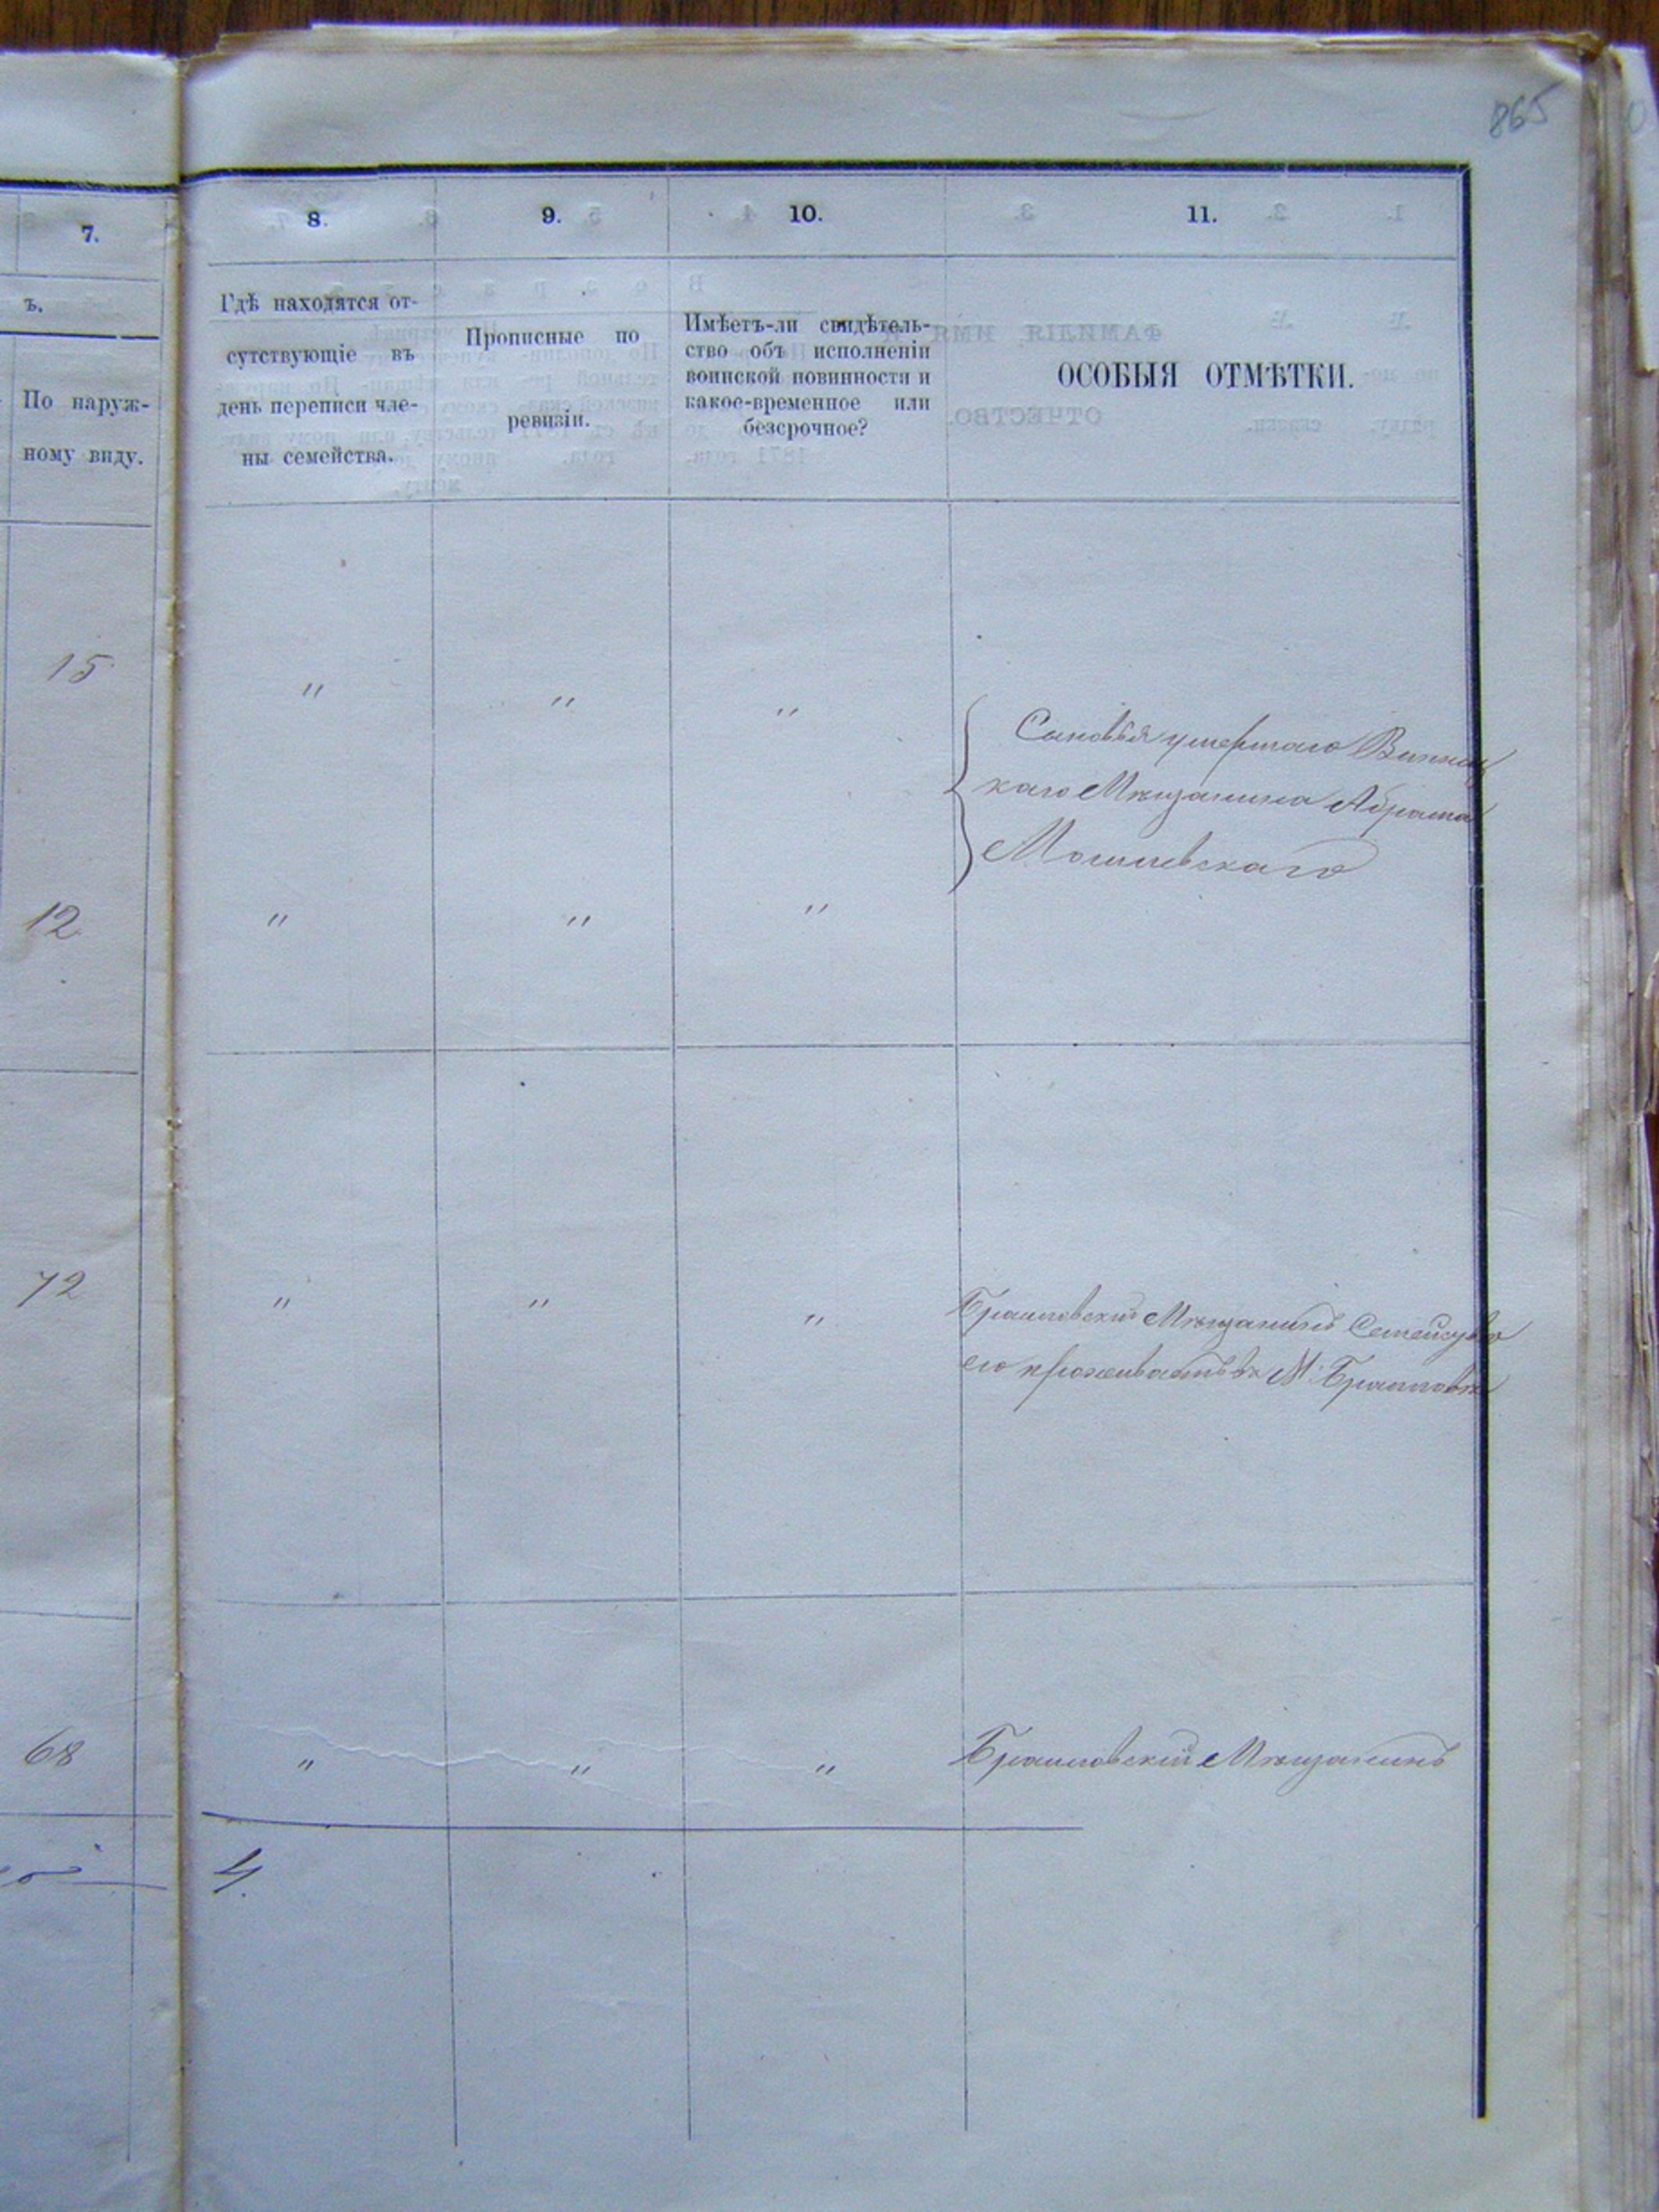 865
7.
8.
9.
10.
11.
ъ.
По наруж-
ному виду.
Гдѣ находятся от-
сутствующіе въ
день переписи чле-
ны семейства.
Прописные по
ревизіи.
Имѣетъ-ли свидѣтель-
ство объ исполненіи
воинской повинности и
какое-временное или
безсрочное?
ОСОБЫЯ ОТМѢТКИ.
15 " " "
Сыновья умершаго Винниц
каго Мѣщанина Абрама
12 " " "
72 " " " Браиловскій Мѣщанинъ Семейство
его проживаетъ въ М. Браиловѣ
68 " " " Браиловскій Мѣщанинъ
4.